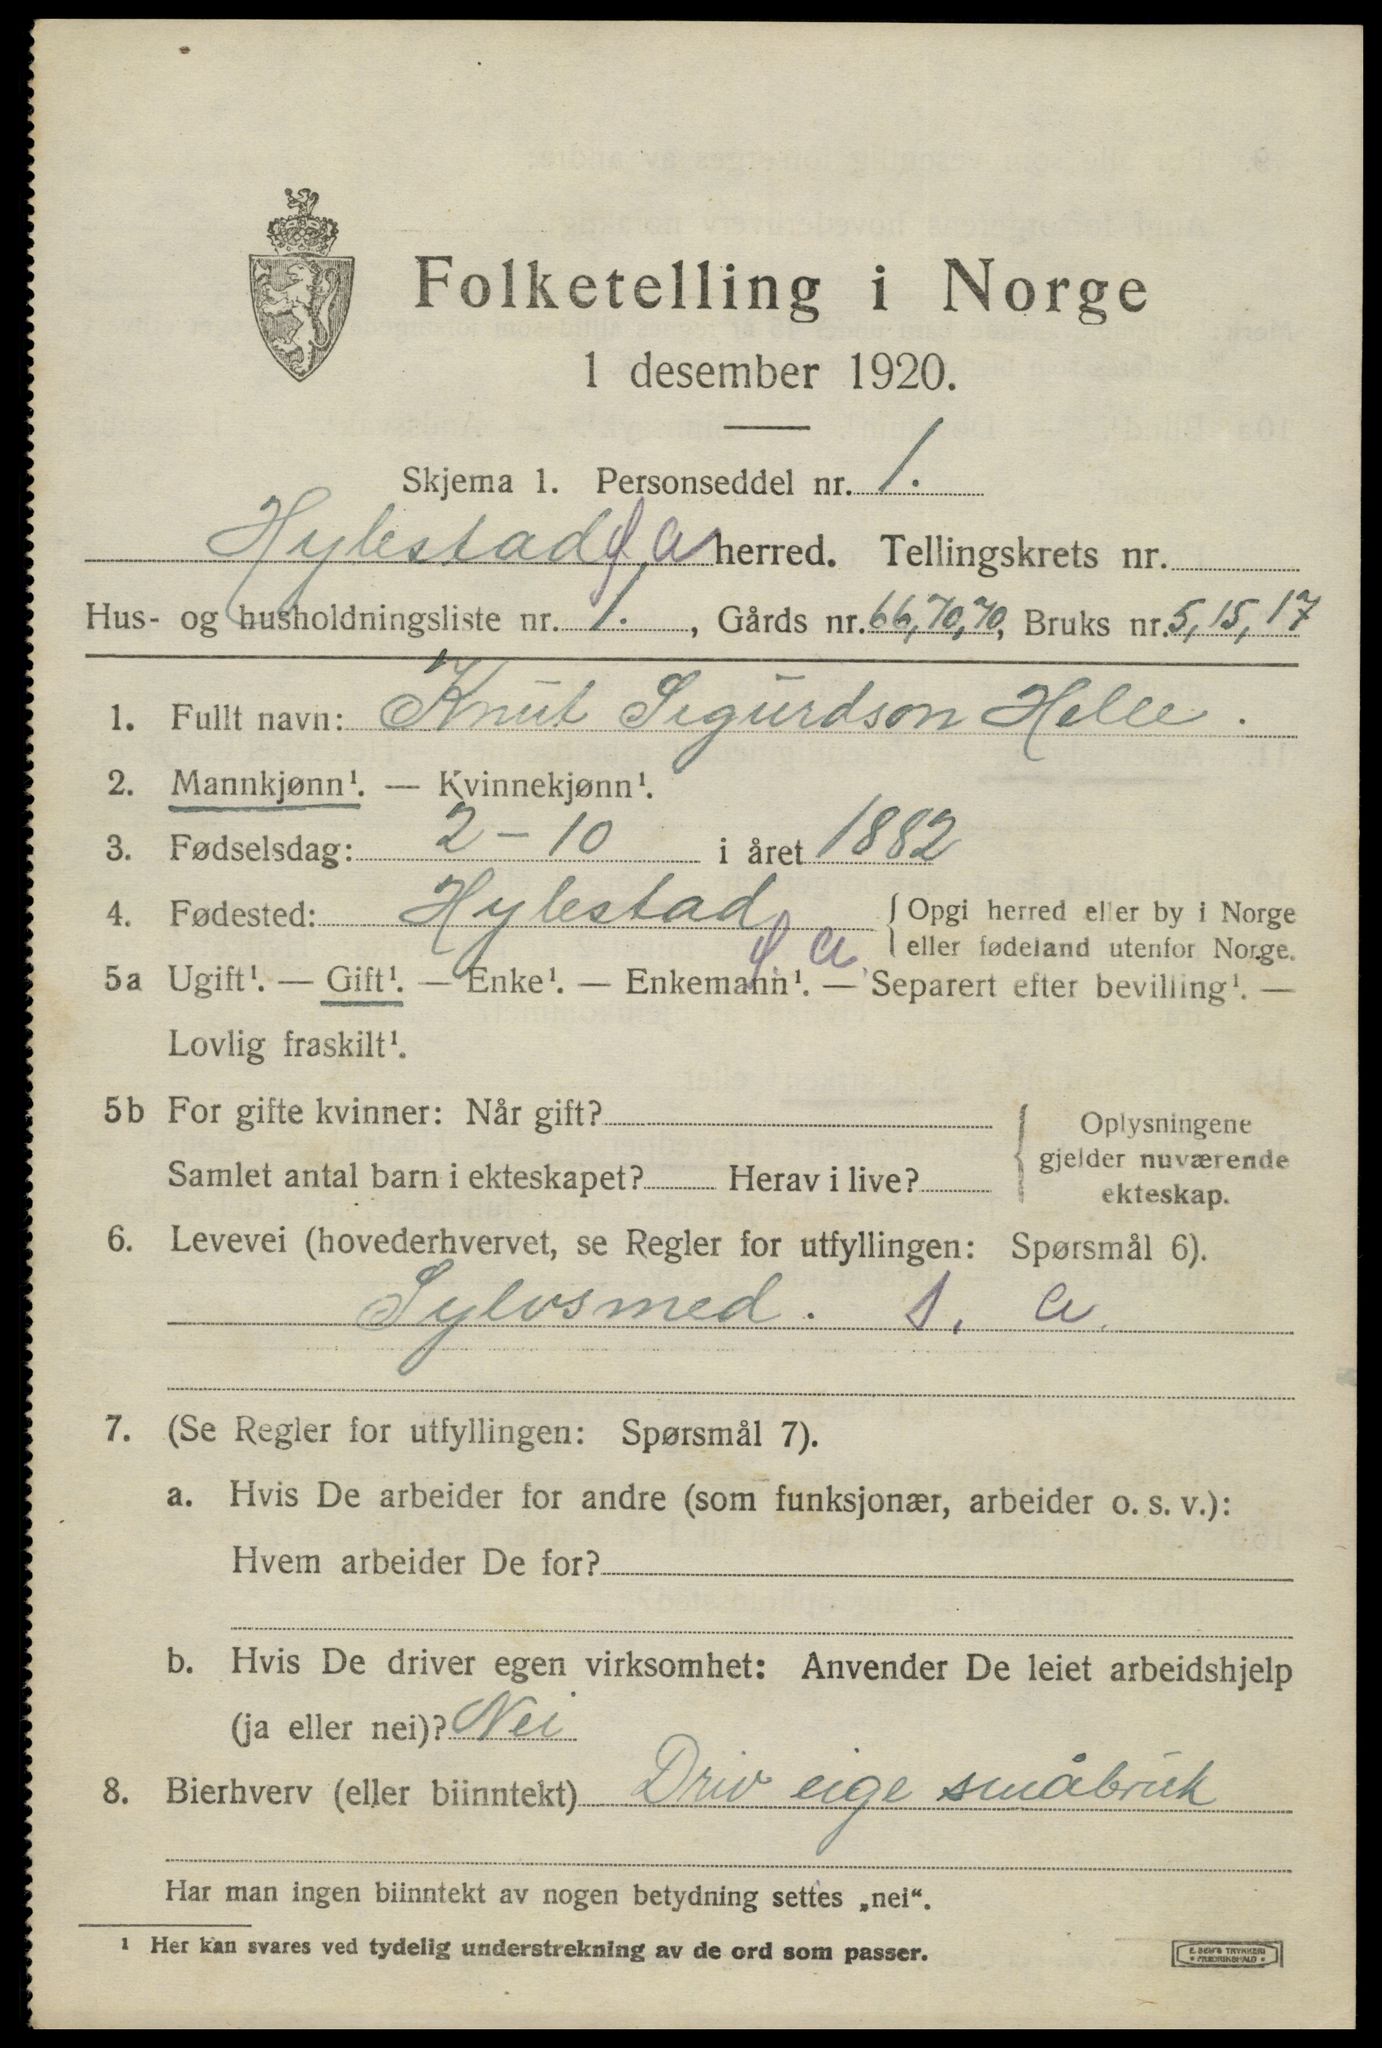 Folketelling i Norge
1 desember 1920.
Skjema 1. Personseddel nr. 1.
Hylestad herred. Tellingskrets nr.
Hus- og husholdningsliste nr. 1. , Gårds nr. 66, 70, 70, Bruks nr. 5, 15, 17
1. Fullt navn: Knut Sigurdson Helle.
2. Mannkjønn¹. — Kvinnekjønn¹.
3. Fødselsdag: 2 - 10 i året 1882
4. Fødested: Hylestad { Opgi herred eller by i Norge
eller fødeland utenfor Norge.
5a Ugift¹. — Gift¹. — Enke¹. — Enkemann¹. — Separert efter bevilling¹. —
Lovlig fraskilt¹.
5b For gifte kvinner: Når gift? { Oplysningene
gjelder nuværende
Samlet antal barn i ekteskapet? Herav i live?
ekteskap.
6. Levevei (hovederhvervet, se Regler for utfyllingen: Spørsmål 6).
Sylvsmed. s. a.
7. (Se Regler for utfyllingen: Spørsmål 7).
a. Hvis De arbeider for andre (som funksjonær, arbeider o. s. v.):
Hvem arbeider De for?
b. Hvis De driver egen virksomhet: Anvender De leiet arbeidshjelp
(ja eller nei)? Nei
8. Bierhverv (eller biinntekt) Driv eige småbruk
Har man ingen biinntekt av nogen betydning settes „nei“.
¹ Her kan svares ved tydelig understrekning av de ord som passer.
E. SEM'S TRYKKERI
FREDRIKSHALD